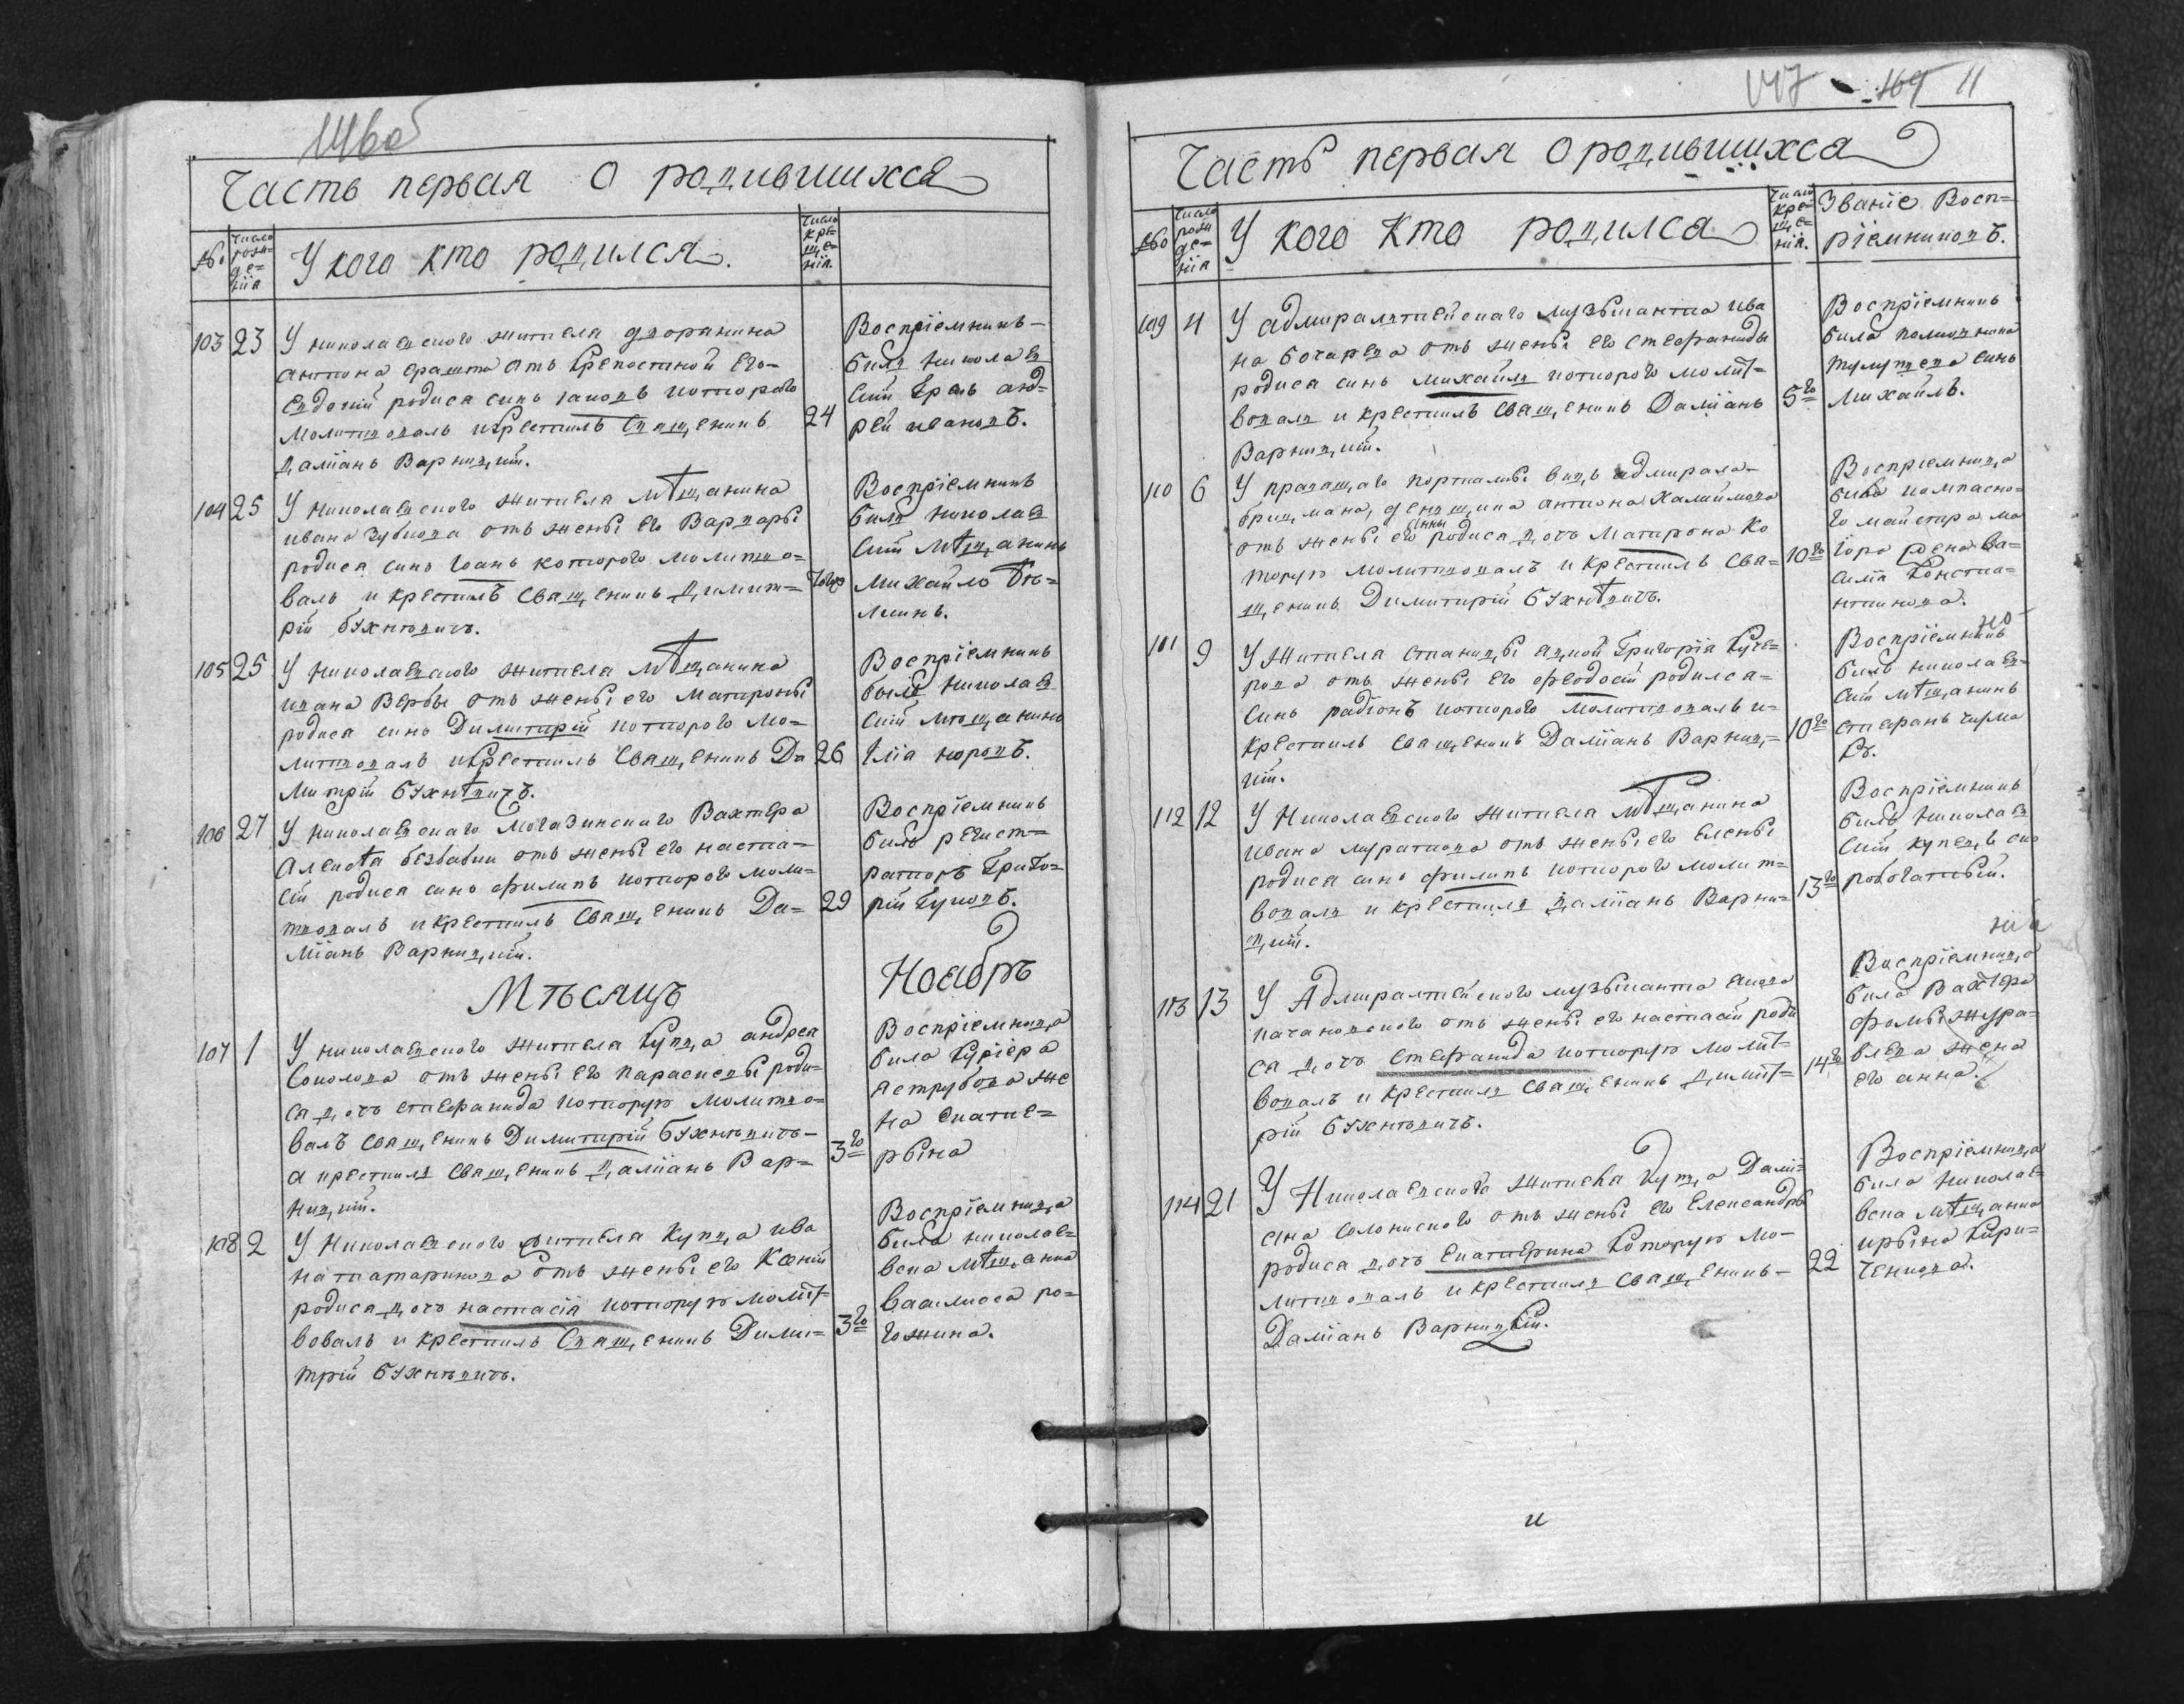 Часть первая О родившихся
№
Число рожденія
У кого кто родился.
Число крещенія.
103 23 У николаевского жителя дворянина
антона ератта отъ крепостной его
Евдокіи родися синъ іаковъ которого
молитвовалъ и крестилъ Священикъ
даміанъ Варницкій.
24
Воспріемникъ
билъ николаев
скій Грекъ анд=
рей ивановъ.
104 25 У николаевского жителя мѣщанина
ивана зубкова отъ жены его Варвары
родися синъ Іоанъ которого молитво=
валъ и крестилъ Священикъ димит=
рій бухнѣвичъ.
Воспріемникъ
билъ николаев
скій мѣщанинъ
михайло
105 25 У николаевского жителя мѣщанина
ивана Вербы отъ жены его матроны
родися синъ Димитрій которого мо=
литвовалъ и крестилъ Священикъ Ди
митрій бухнѣвичъ.
26
Воспріемникъ
былъ николаев
скій мѣщанинъ
Iлія коровъ.
106 27 У николаевскаго могазинскаго Вахтера
Алексѣя безбабни отъ жены его наста=
сіи родися синъ филипъ которого моли=
твовалъ и крестилъ Священикъ Да=
міанъ Варницкій.
29
Воспріемникъ
билъ регист=
раторъ Григо=
рій Гуковъ.
Мѣсяцъ Ноябръ
107 1 У николаевского жителя купца андрея
Соколова отъ жены его параскевы роди=
ся дочь стефанида которую молитво=
валъ священикъ Димитрій бухнѣвичъ
а крестилъ священикъ даміанъ Вар=
ницкій.
3го
Воспріемница
била курiера
яструбова же
на екате=
рына
108 2 У Николаевского жителя Купца ива
на татаринова отъ жены его Ксеніи
родися дочь настасія которую молит=
вовалъ и крестилъ Священикъ Дими=
трій бухнѣвичъ.
3го
Воспріемница
била николае=
вска мѣщанка
Василиса ро=
гожина.
147 169 11
Часть первая О родившихся
№
Число рожденія
У кого Кто родился
Число крещенія.
Званіе Восп=
ріемниковъ.
109 4 У адмиралтейскаго музыканта ива
на бочарева отъ жены его стефаниды
родися синъ михаилъ которого молит=
вовалъ и крестилъ Священикъ Даміанъ
Варницкій.
5го
Воспріемникъ
била полковника
синъ
михаилъ.
110 6 У правящаго порталы вицъ адмирала
брицмана, денщика антона Халаимова
отъ жены его Анны родися дочь Матрона Ко
торую молитвовалъ и крестилъ Свя=
щеникъ Димитрій бухнѣвичъ.
10го
Воспріемница
била компасно=
го майстра ма
іора жена Ва=
силія Конста=
нтинова.
101 9 У жителя станицы
Григорія
рова отъ жены его феодосіи родился
синъ радіонъ которого молитвовалъ и
крестилъ священикъ Даміанъ Варниц=
кій.
10го
Воспріемникъ
билъ николаев=
скій мѣщанинъ
стефанъ
112 12 У Николаевского жителя мѣщанина
ивана муратова отъ жены его елены
родися синъ филипъ которого молит=
вовалъ и крестилъ даміанъ Варни=
цкій.
13го
Воспріемникъ
билъ николаев
скій купецъ ско
робогатый.
113 13 У Адмиралтейского музыканта
качановского отъ жены его настасіи роди
ся дочь Стефанида которую молит=
вовалъ и крестилъ священикъ димит=
рій бухнѣвичъ.
14го
Воспріемница
била Вахтера
фомы жура=
влева жена
его анна.
114 21 У Николаевского жителя купца Дамі=
ана солонского отъ жены его Елександры
родися дочь Екатерина которую мо=
литвовалъ и крестилъ священикъ
Даміанъ Варницкій.
22
Воспріемница
била николае=
вска мѣщанка
ирына Кири=
ченкова.
и